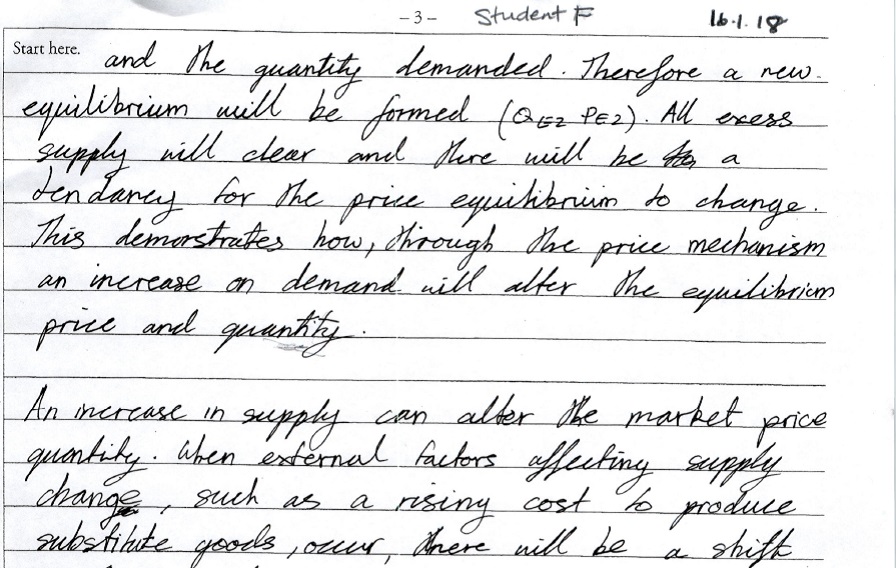 - 3 - Student F 16.1.18
Start here.
and the quantity demanded. Therefore a new
equilibrium will be formed (QE2 PE2). All exess
supply will clear and there will be a
tendancy for the price equilibrium to change.
This demonstrates how, through the price mechanism
an increase on demand will alter the equilibrium
price and quantity.
An increase in supply can alter the market price
quantity. When external factors affecting supply
change, such as a rising cost to produce
substitute goods, occur, there will be a shift